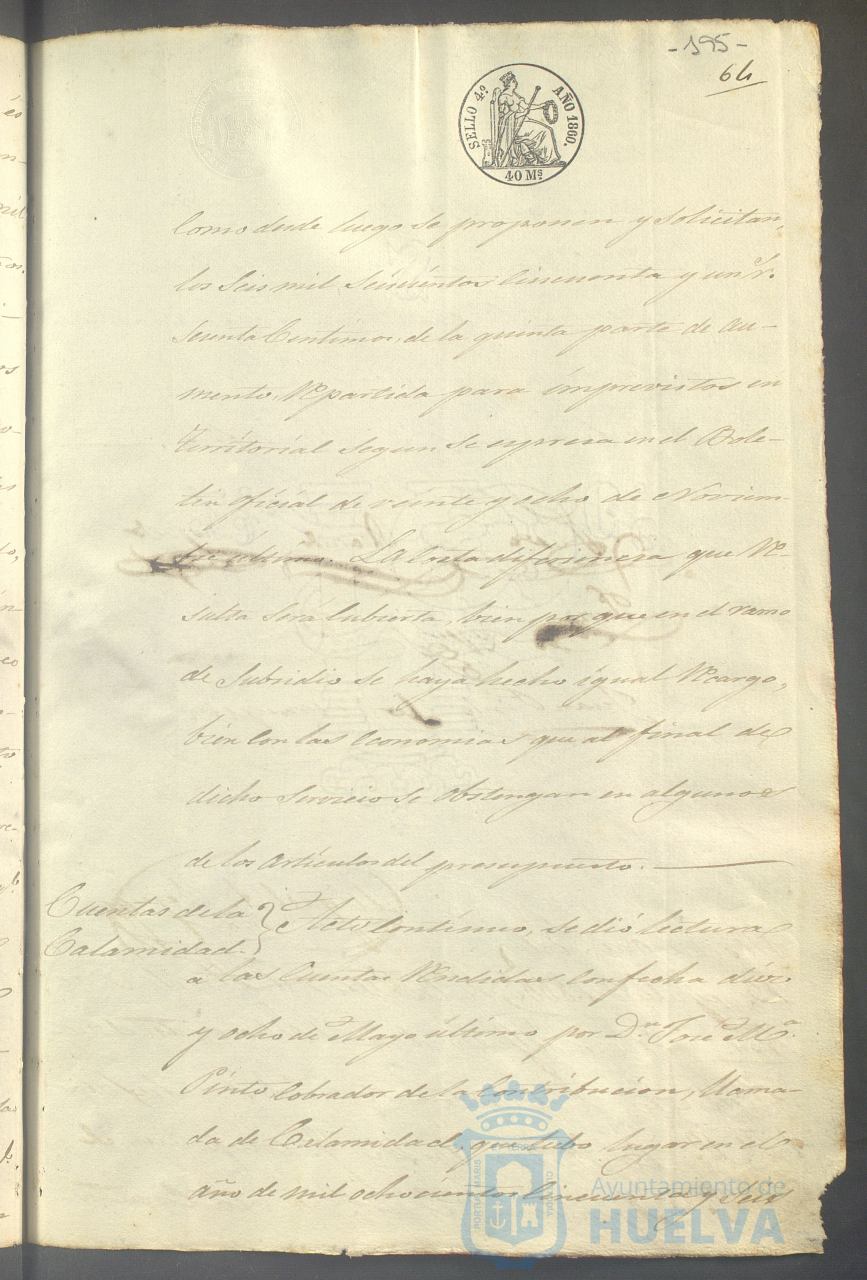 -195-
64
SELLO 4º AÑO 1860.
40 Ms
Como desde luego se proponen y solicitan,
los Seis mil Seicientos Cincuenta y un r.
Sesenta Centimos, de la quinta parte de au-
mento, Repartida para imprevistos en
Territorial segun se espresa en el Bole-
tin oficial de veinte y ocho de Noviem-
bre ultimo. La Corta diferiencia que Re-
sulta será Cubierta, bien por que en el ramo
de Subsidio se haya hecho igual Recargo,
bien con las economias que al final de
dicho Servicio se obtengan en algunos
de los articulos del presupuesto.
Cuentas de la
Calamidad.
Acto Continuo, se dió lectura
a las Cuentas Rendidas con fecha diez
y ocho de Mayo último por Dn. José Mª.
Pinto Cobrador de la Contribucion, Llama-
da de Calamidad, que tubo lugar en el
año de mil ochocientos Cincuenta y seis
Ayuntamiento de
HUELVA